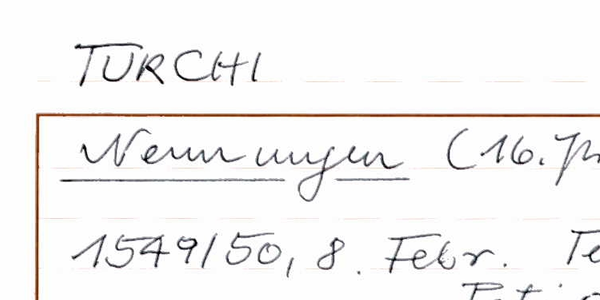 TURCHI
Nennungen (16.
1549/50, 8. Febr.